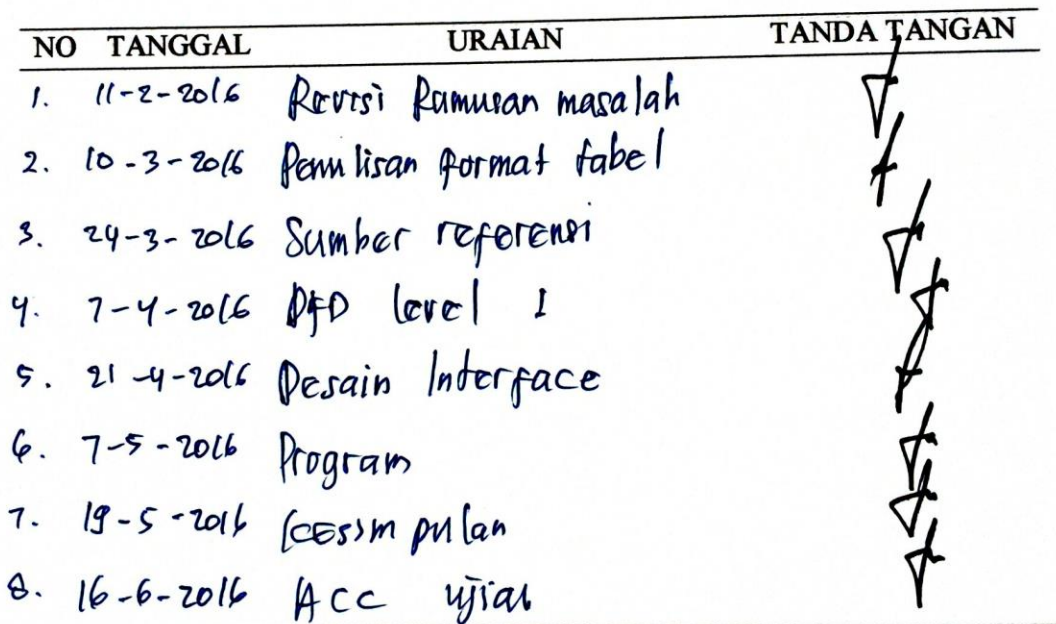 NO TANGGAL URAIAN TANDA TANGAN
1. 11-2-2016 Revisi Rumusan masalah
2. 10-3-2016 Penulisan format tabel
3. 24-3-2016 Sumber referensi
4. 7-4-2016 DFD level I
5. 21-4-2016 Desain Interface
6. 7-5-2016 Program
7. 19-5-2016 Kesimpulan
8. 16-6-2016 ACC ujian